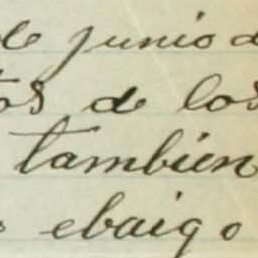 de junio d
tos de los
también
ebaigo